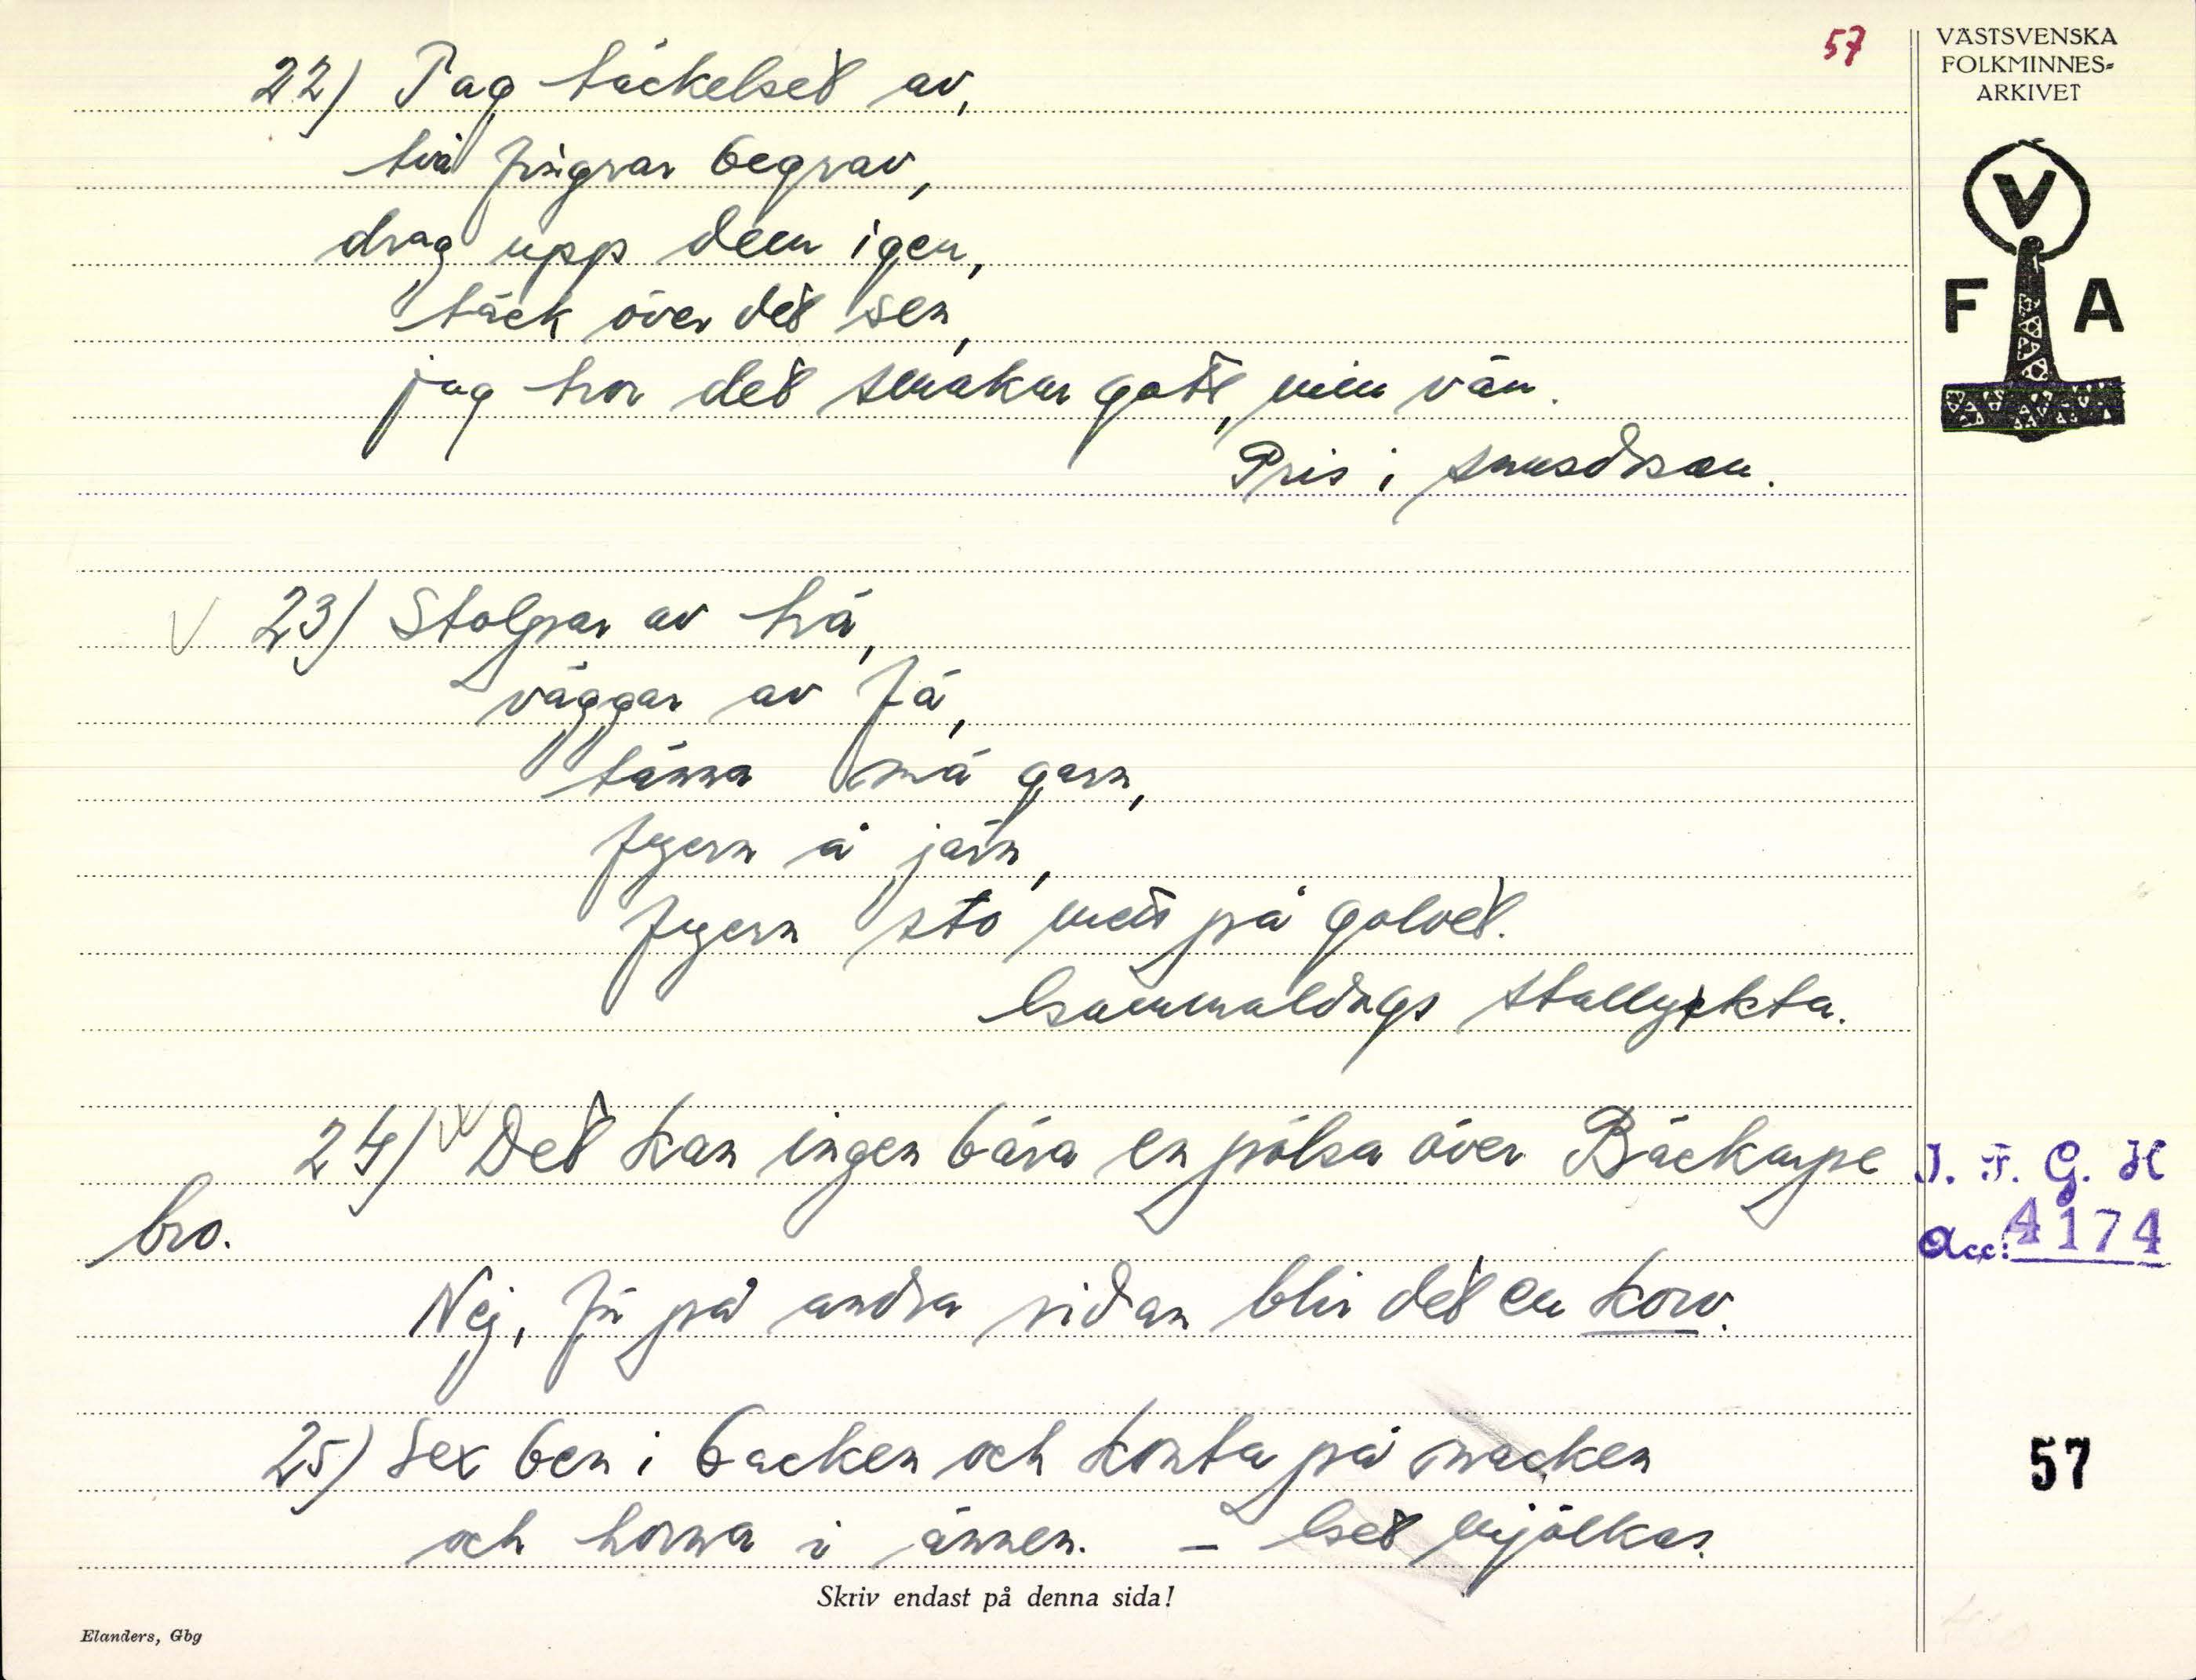 57
VÄSTSVENSKA
FOLKMINNES-
ARKIVET
V
F A
22) Tag täckelset av,
två fingrar begrav,
drag upp dem igen,
täck över det sen,
jag tror det smakar gott, min vän.
Pris i snusdosan.
V 23) Stolpar av trä,
väggar av fä,
tänna må garn,
fyern å järn,
fyern stå mett på golvet.
Gammaldags stallykta.
24) Det kan ingen bära en pölsa över Bäckarpe
bro.
Nej, för på andra sidan blir det en korv.
25) Sex ben i backen och konta på nacken
och horna i ännen. – Get mjölkas.
I. F. G. H
Acc: 4174
57
Skriv endast på denna sida!
Elanders, Gbg